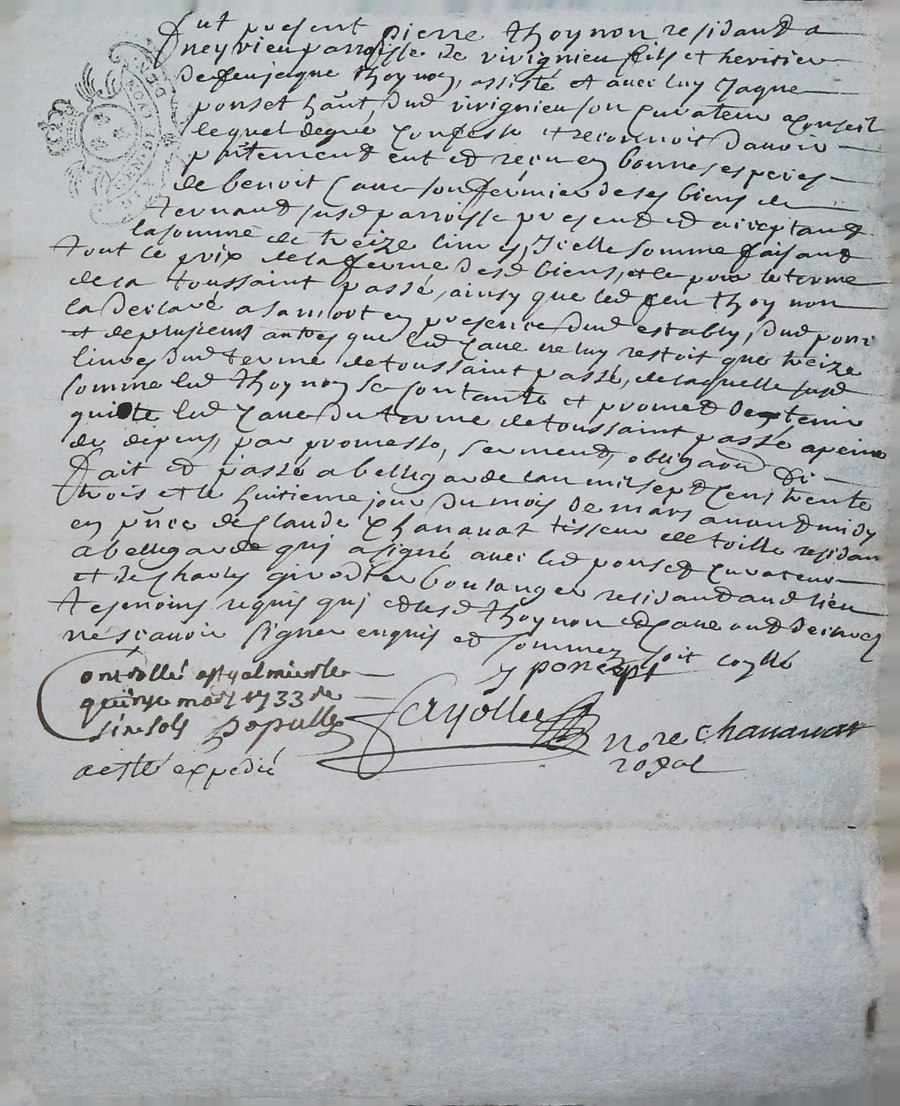 fut present pierre thoynon residand a
neyvieu parroisse de virignieu fils et heritier
de feu jaque thoynon, assisté et avec luy Jaque
ponset haût dud virignieu son curateur a conseil
lequel degré confesse et reconnois d'avoir
eut et reçu en bonnes especes
de benoit Cave son fermier de ses biens de
susd parroisse present et acceptand
la somme de treize livres, Icelle somme faisand
tout le prix de la ferme desd biens, et ce pour le terme
de la toussaint passé, ainsy que led feu thoynon
la declaré a sa mort en presence dud estably, dud ponset
et de plusieurs autres que led Cave ne luy restoit que treize
livres dud terme de toussaint passé, de laquelle susd
somme led thoynon se contante et promet de tenir
quitte led Cave du terme de toussaint passé a peine
de depens, par promesse, serment, obligaon
fait et passé a bellegarde l'an mil sept cens trente
trois et le huitieme jour du mois de mars avand midy
en pñce de Claude Chanavat tisseur de toille residan
a bellegarde qui a signé avec led ponset curateur
et de Charles boulanger residand aud lieu
tesmoins requis qui et led thoynon et Cave ond declaré
ne scavoir signer enquis et sommez soit collé
Controllé a st galmier le
quinze mars 1733 de
six sols populle
J poncept
fayolle
chanavat
Nore royal
a esté expedié